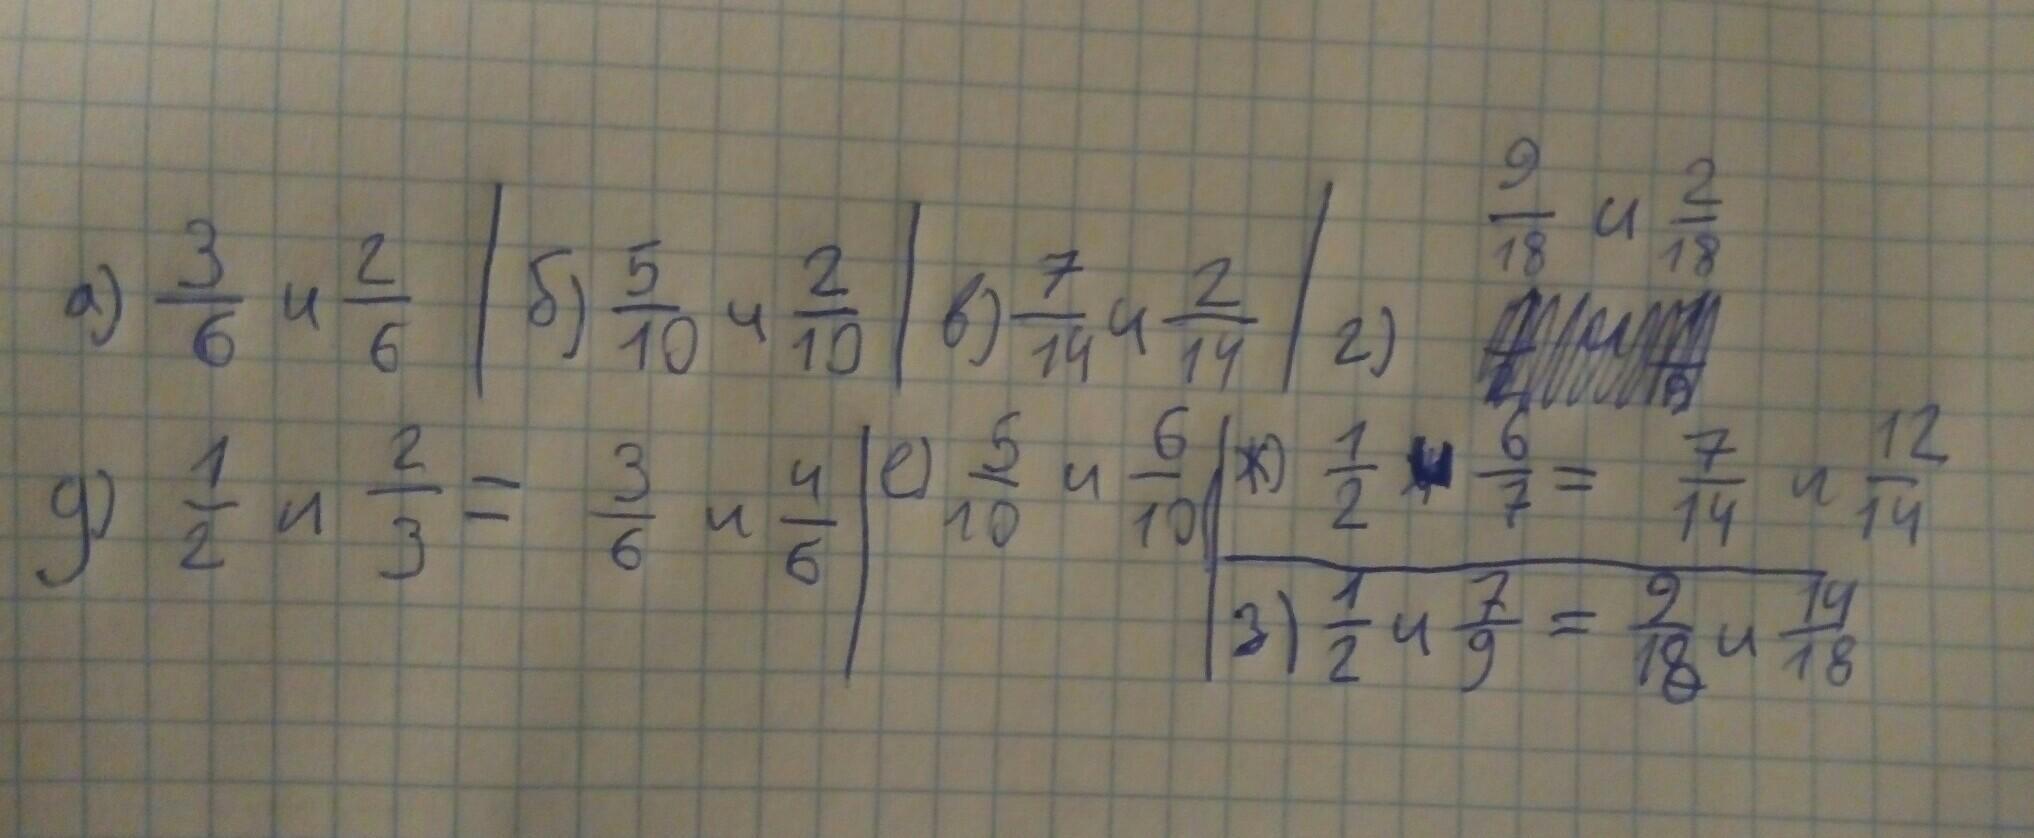 а) 3/6 и 2/6 | б) 5/10 и 2/10 | в) 7/14 и 2/14 | г) 9/18 и 2/18
д) 1/2 и 2/3 = 3/6 и 4/6 | е) 5/10 и 6/10 | ж) 1/2 и 6/7 = 7/14 и 12/14
з) 1/2 и 7/9 = 9/18 и 14/18